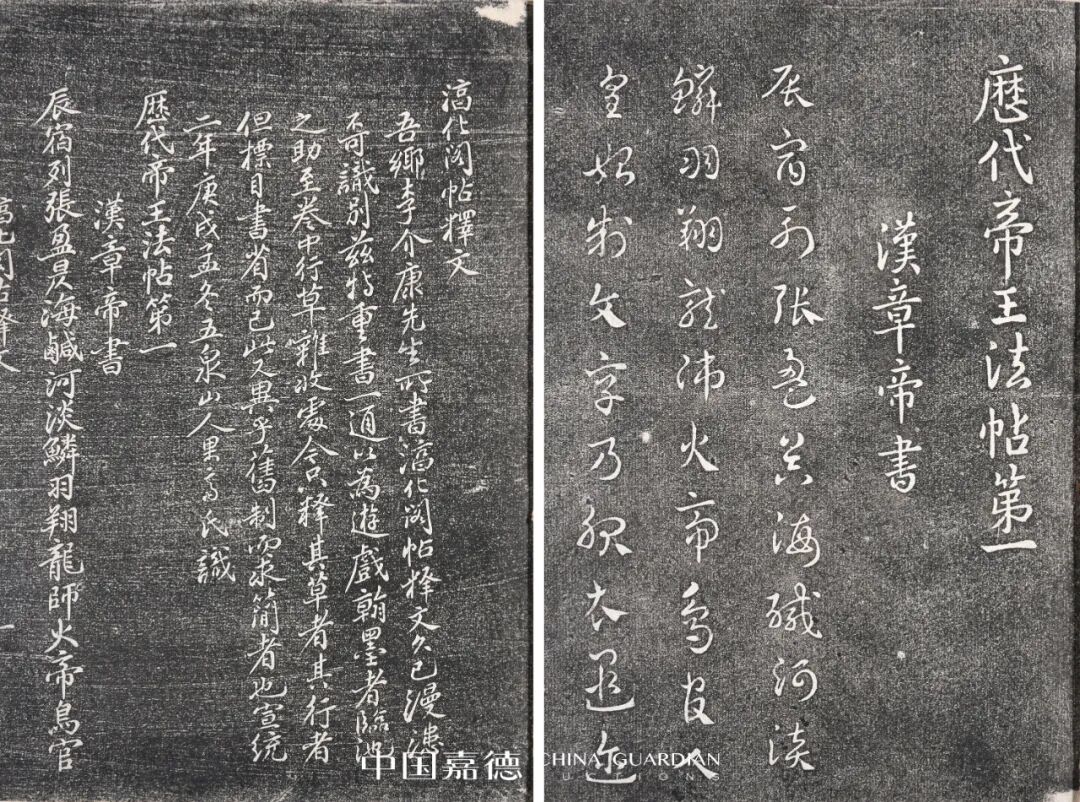 歷代帝王法帖第一
漢章帝書
辰宿列張盈昃海鹹河淡
鱗羽翔龍師火帝鳥官人
皇始制文字乃服衣裳遐迩
淳化閣帖釋文
吾鄉李介康先生所書淳化閣帖釋文久已漫漶
不可識別茲特重書一通以為遊戲翰墨者臨池
之助至卷中行草雜收處今只釋其草者其行者
但標目書省而已此又異乎舊制而求簡者也宣統
二年庚戌孟冬五泉山人果齋氏識
歷代帝王法帖第一
漢章帝書
辰宿列張盈昃海鹹河淡鱗羽翔龍師火帝鳥官
中国嘉德
CHINA GUARDIAN
AUCTIONS